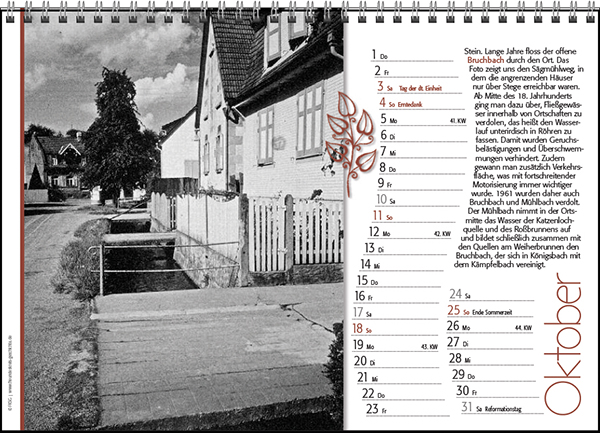 1 Do
2 Fr
3 Sa Tag der dt. Einheit
4 So Erntedank
5 Mo 41. KW
6 Di
7 Mi
8 Do
9 Fr
10 Sa
11 So
12 Mo 42. KW
13 Di
14 Mi
15 Do
16 Fr
17 Sa
18 So
19 Mo 43. KW
20 Di
21 Mi
22 Do
23 Fr
24 Sa
25 So Ende Sommerzeit
26 Mo 44. KW
27 Di
28 Mi
29 Do
30 Fr
31 Sa Reformationstag
Stein. Lange Jahre floss der offene
Bruchbach durch den Ort. Das
Foto zeigt uns den Sägmühlweg, in
dem die angrenzenden Häuser
nur über Stege erreichbar waren.
Ab Mitte des 18. Jahrhunderts
ging man dazu über, Fließgewäs-
ser innerhalb von Ortschaften zu
verdolen, das heißt den Wasser-
lauf unterirdisch in Röhren zu
fassen. Damit wurden Geruchs-
belästigungen und Überschwem-
mungen verhindert. Zudem
gewann man zusätzlich Verkehrs-
fläche, was mit fortschreitender
Motorisierung immer wichtiger
wurde. 1961 wurden daher auch
Bruchbach und Mühlbach verdolt.
Der Mühlbach nimmt in der Orts-
mitte das Wasser der Katzenloch-
quelle und des Roßbrunnens auf
und bildet schließlich zusammen mit
den Quellen am Weiherbrunnen den
Bruchbach, der sich in Königsbach mit
dem Kämpfelbach vereinigt.
Oktober